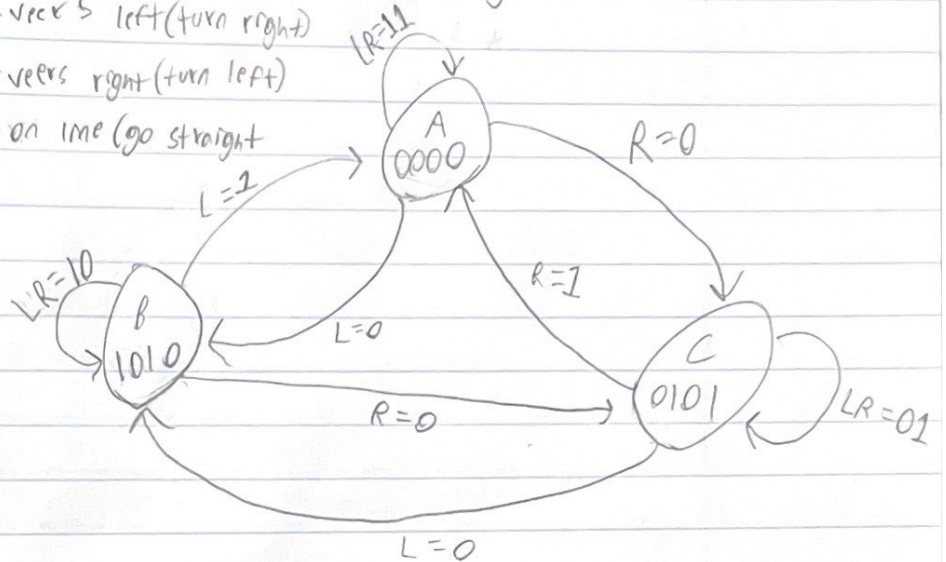 veers left (turn right)
veers right (turn left)
on line (go straight
LR=11
A
0000
R=0
L=1
R=1
LR=10
B
1010
L=0
C
0101
R=0
LR=01
L=0